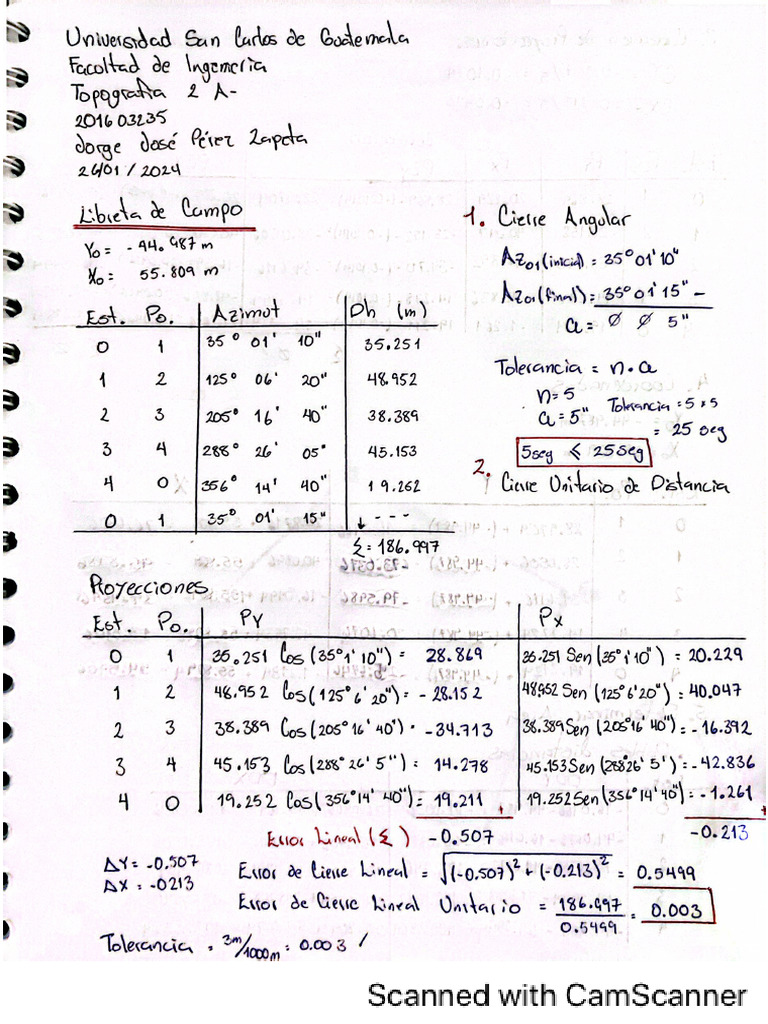 Universidad San Carlos de Guatemala
Facultad de Ingenieria
Topografia 2 A-
201603235
Jorge José Pérez Zapeta
26/01/2024
Libreta de Campo
Yo = -44.487 m
Xo = 55.809 m
Est. Po. Azimot Dh (m)
0 1 35° 01' 10" 35.251
1 2 125° 06' 20" 48.952
2 3 205° 16' 40" 38.389
3 4 288° 26' 05" 45.153
4 0 356° 14' 40" 19.252
0 1 35° 01' 15" ↓ - - -
Σ = 186.997
1. Cierre Angular
Az01 (inicial) = 35° 01' 10"
Az01 (final) = 35° 01' 15" -
a = Ø Ø 5"
Tolerancia = n·a
n = 5
a = 5"
Tolerancia = 5 * 5
= 25 seg
5seg < 25seg
2. Cierre Unitario de Distancia
Proyecciones
Est. Po. PY Px
0 1 35.251 Cos(35°1'10") = 28.869 35.251 Sen(35°1'10") = 20.229
1 2 48.952 Cos(125°6'20") = -28.152 48.952 Sen(125°6'20") = 40.047
2 3 38.389 Cos(205°16'40") = -34.713 38.389 Sen(205°16'40") = -16.392
3 4 45.153 Cos(288°26'5") = 14.278 45.153 Sen(288°26'5') = -42.836
4 0 19.252 Cos(356°14'40") = 19.211 + 19.252 Sen(356°14'40") = -1.261 +
Error Lineal (Σ) -0.507 -0.213
ΔY = -0.507
ΔX = -0213
Error de Cierre Lineal = √(-0.507)² + (-0.213)² = 0.5499
Error de Cierre Lineal Unitario = 186.997 / 0.5499 = 0.003
Tolerancia = 3m/1000m = 0.003 /
Scanned with CamScanner